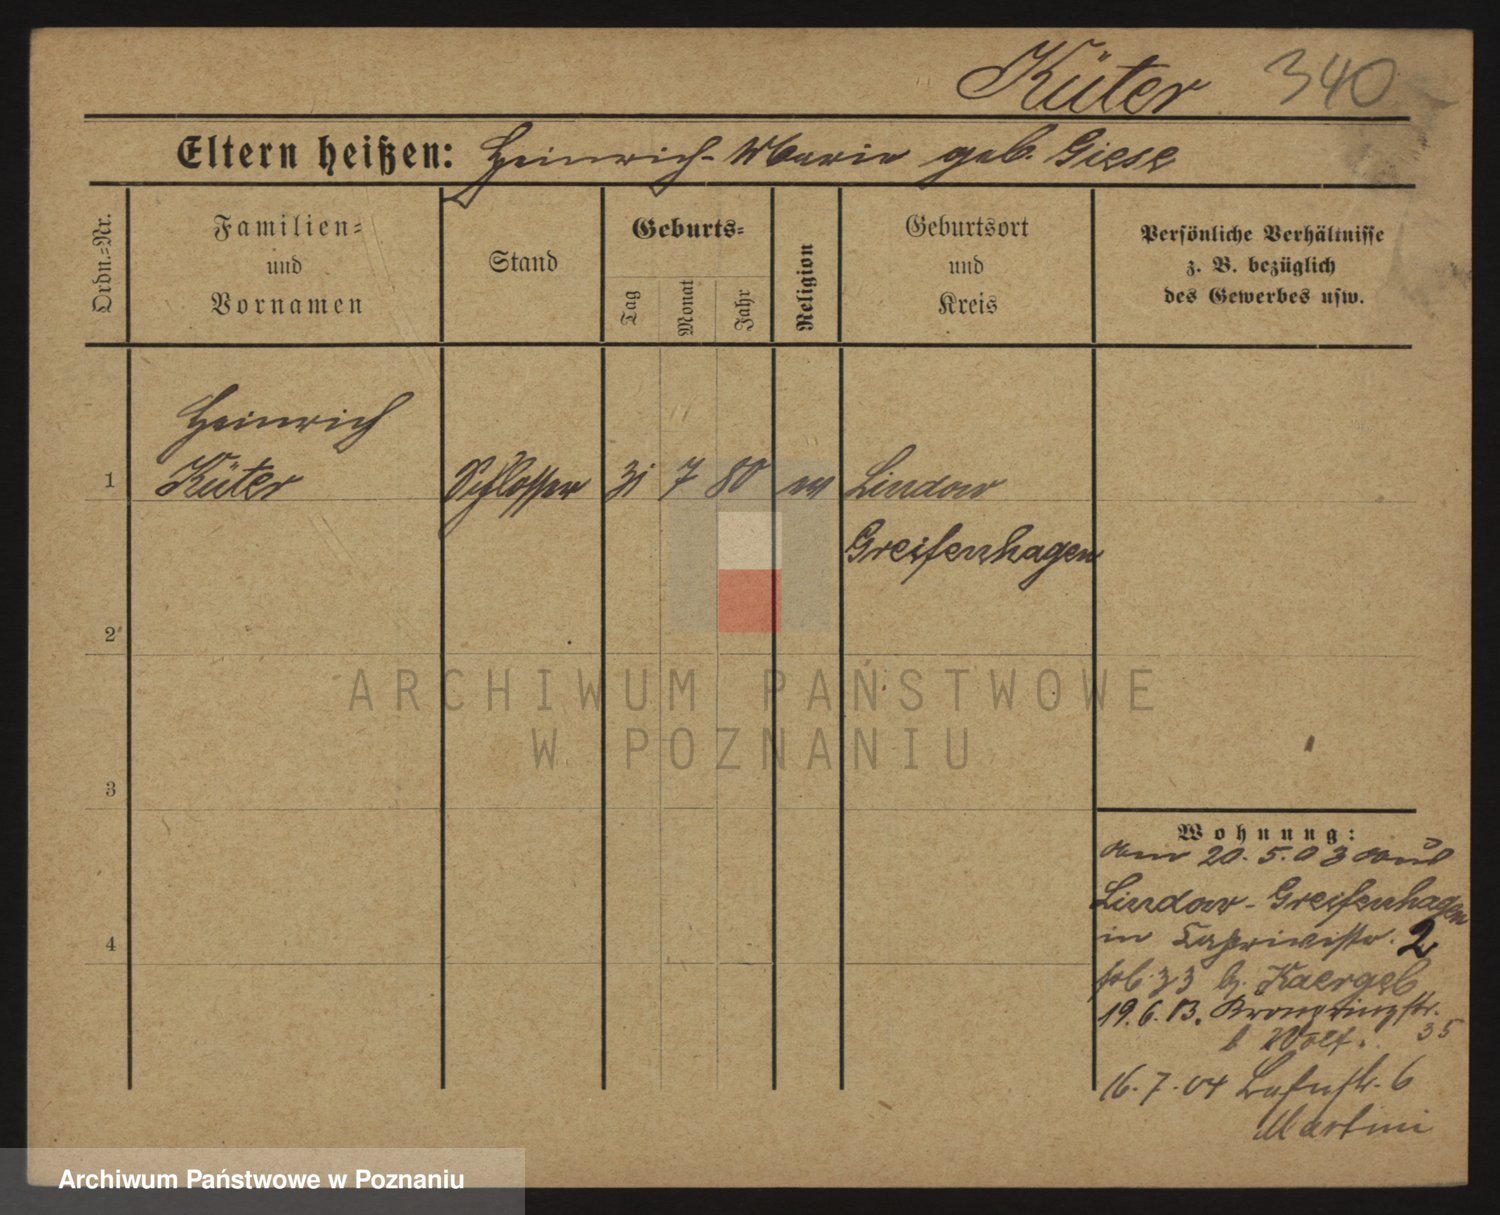 Küter 340
Eltern heißen: Heinrich - Marie geb. Giese
Ordn.=Nr.
Familien=
und
Vornamen
Stand
Geburts=
Tag
Monat
Jahr
Religion
Geburtsort
und
Kreis
Persönliche Verhältnisse
z. B. bezüglich
des Gewerbes usw.
Heinrich
1 Küter Schlosser 31 7 80 ev Lindow
Greifenhagen
2
3
4
Wohnung:
am 20. 5. 03 aus
Lindow - Greifenhagen
in Caprivistr. 2
b. Kaergel
19. 6. 03. Kronprinzstr.
b Wolf. 35
16. 7. 04 Bahnstr. 6
Martini
ARCHIWUM PAŃSTWOWE
W POZNANIU
Archiwum Państwowe w Poznaniu